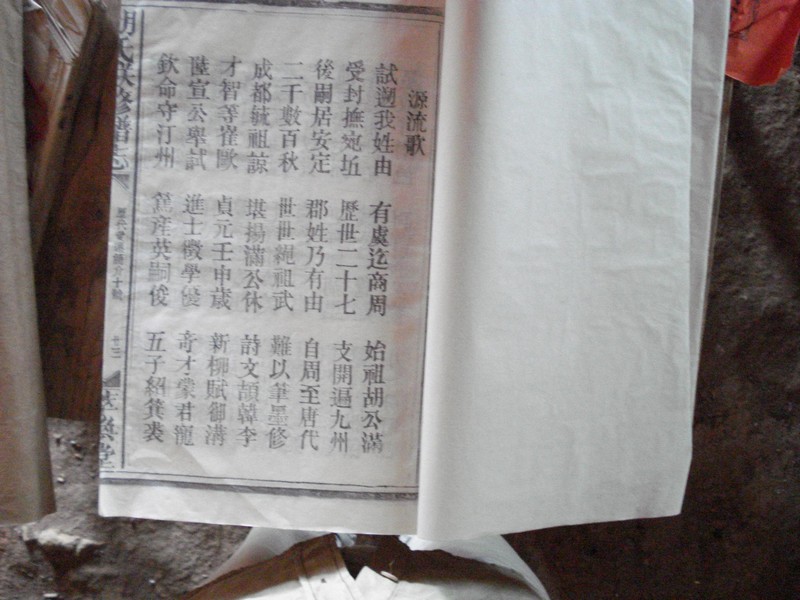 源流歌
試遡我姓由 有虞迄商周 始祖胡公滿
受封撫宛丘 歷世二十七 支開遍九州
後嗣居安定 郡姓乃有由 自周至唐代
二千數百秋 世世繩祖武 難以筆墨修
成都毓祖諒 堪揚滿公休 詩文頡韓李
才智等崔歐 貞元壬申歲 新柳賦御溝
陸宣公舉試 進士徵學優 奇才蒙君寵
欽命守汀州 篤產英嗣俊 五子紹箕裘
胡氏联修譜志